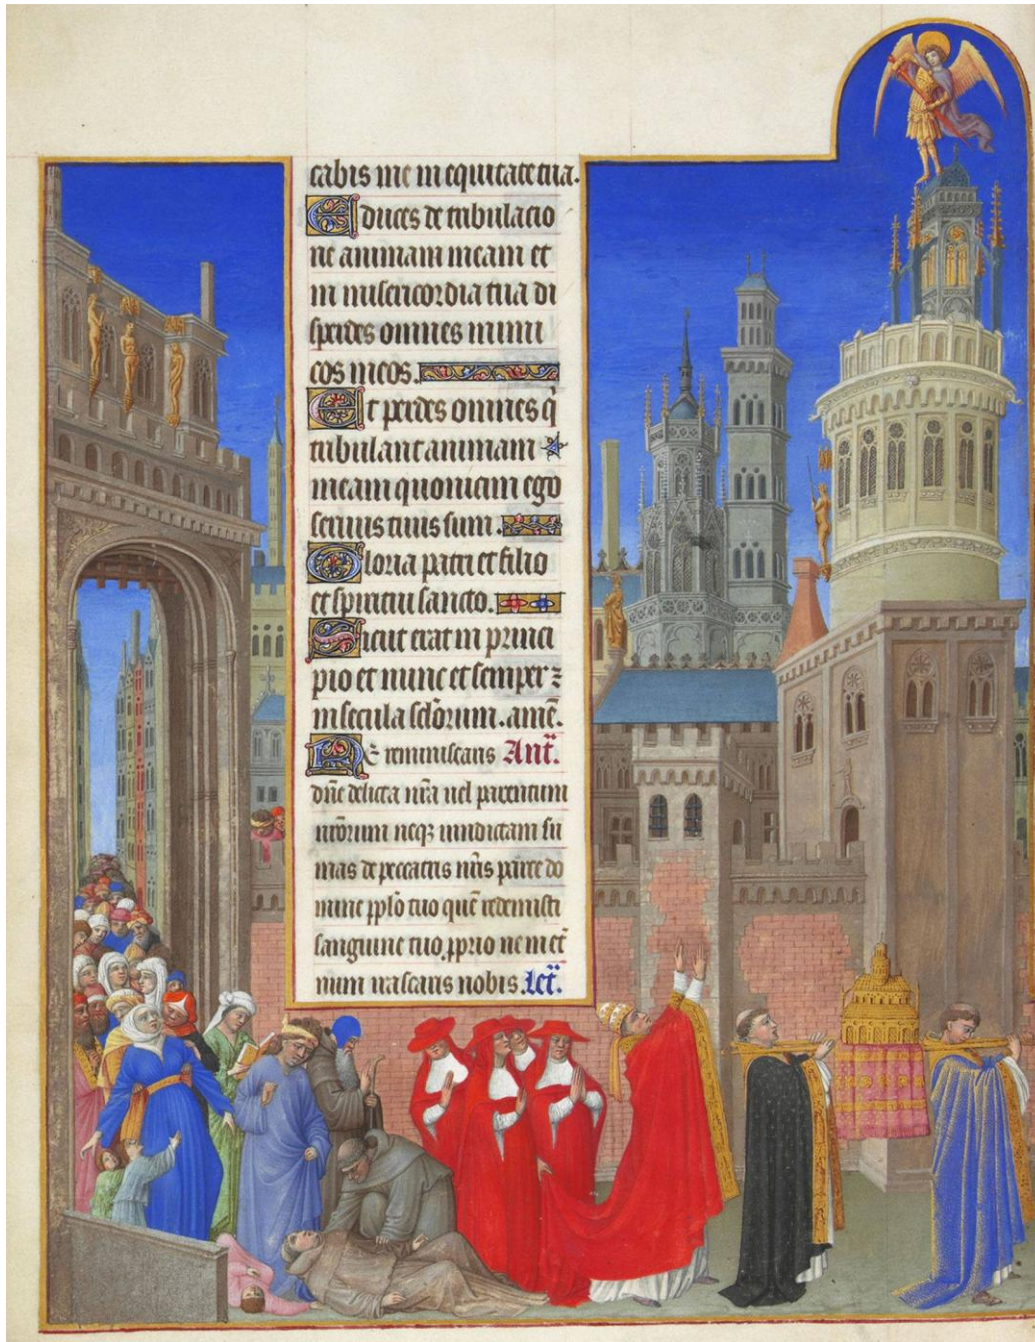 cabis me in equitate tua.
Educes de tribulacio
ne animam meam et
in misericordia tua di
sperdes omnes inimi
cos meos.
Et perdes omnes q̄
tribulant animam
meam quoniam ego
servus tuus sum.
Gloria patri et filio
et spiritui sancto.
Sicut erat in princi
pio et nunc et semper ⁊
in secula sclōrum. amē.
Ne reminiscaris Ant̄.
dn̄e delicta nr̄a vel parentum
nr̄orum neqꝫ vindictam su
mas de peccatis nr̄is parce do
mine pplo tuo quē redemisti
sanguine tuo pprio ne in et̄
num irascaris nobis. let̄.